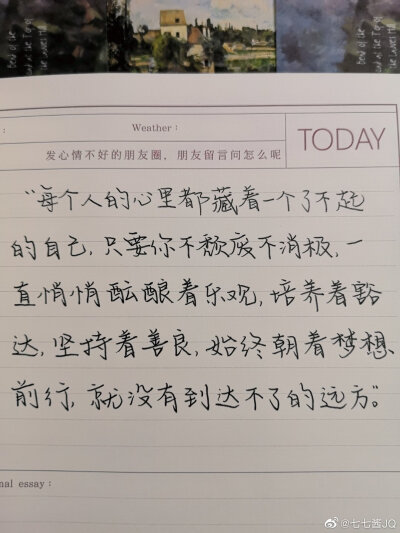 Weather:
TODAY
发心情不好的朋友圈，朋友留言问怎么呢
“每个人的心里都藏着一个了不起
的自己，只要你不颓废不消极，一
直悄悄酝酿着乐观，培养着豁
达，坚持着善良，始终朝着梦想
前行，就没有到达不了的远方。”
nal essay:
@七七酱JQ